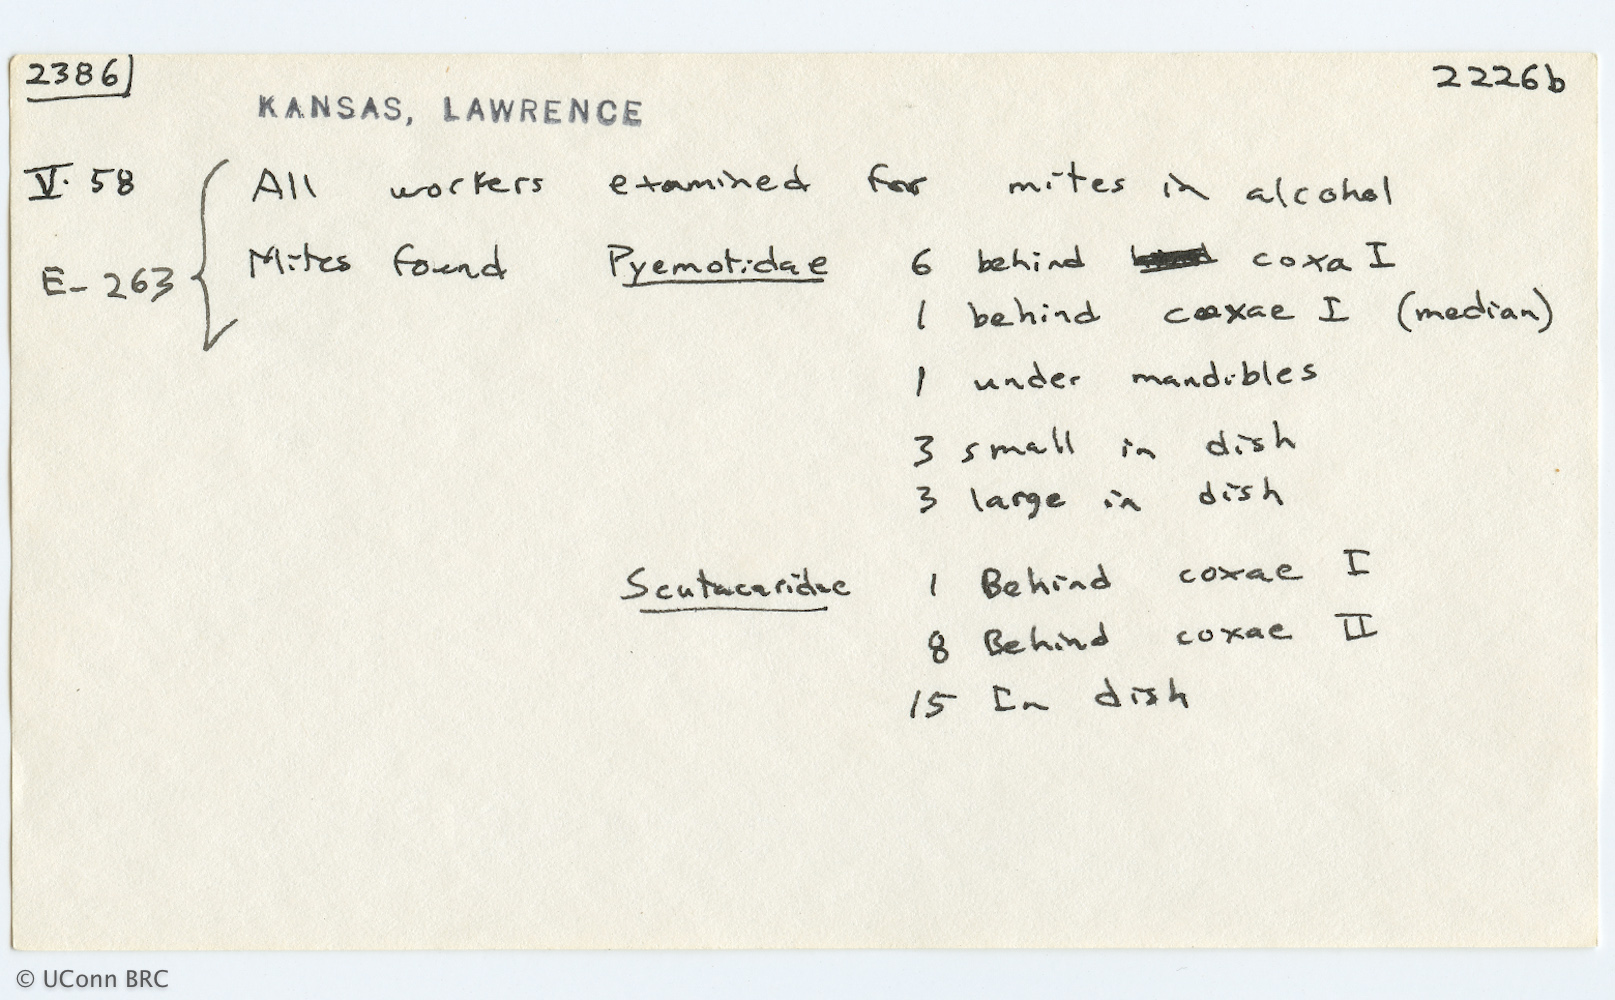 2386 2226b
KANSAS, LAWRENCE
V. 58 All workers examined for mites in alcohol
E-263 Mites found Pyemotidae 6 behind coxa I
1 behind coxae I (median)
1 under mandibles
3 small in dish
3 large in dish
Scutacaridae 1 Behind coxae I
8 Behind coxae II
15 In dish
© UConn BRC